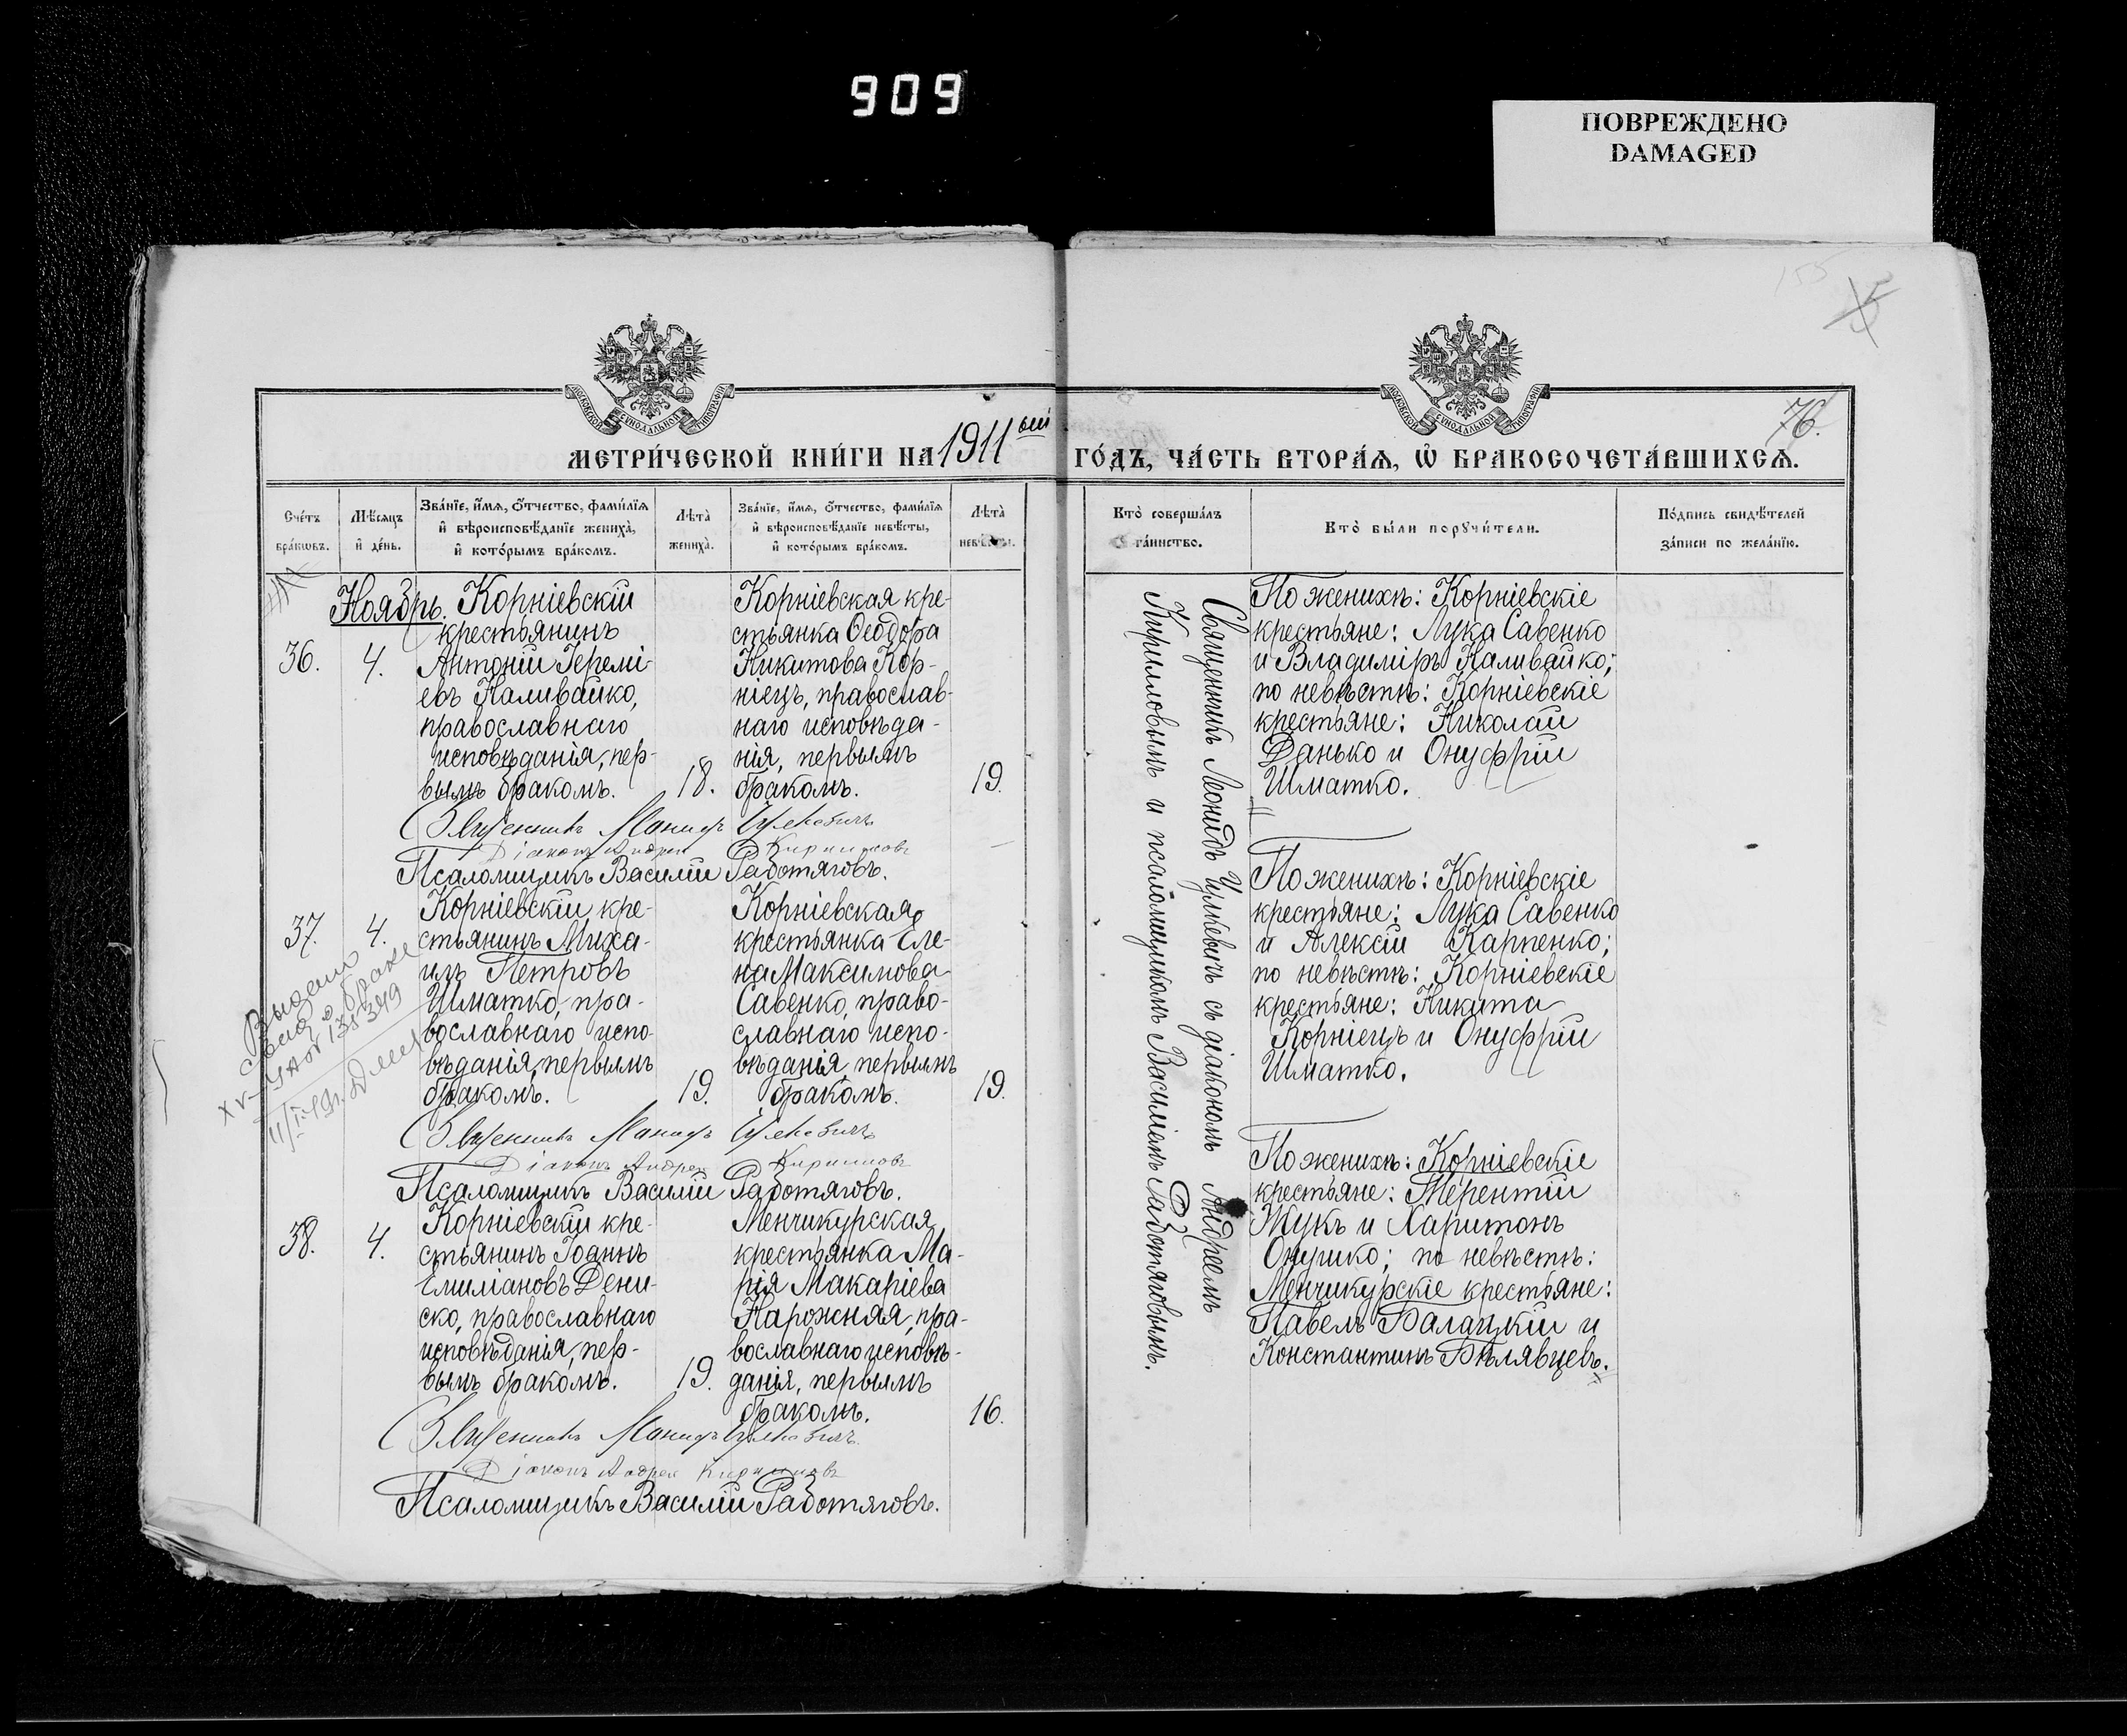 909
ПОВРЕЖДЕНО
DAMAGED
155
76.
МЕТРИ́ЧЕСКОЙ КНИ́ГИ НА 1911ый ГО́ДЪ, ЧА́СТЬ ВТОРА́Ѧ, Ѽ БРАКОСОЧЕТА́ВШИХСѦ.
Сче́тъ бра́кѡвъ.
Мѣ́сѧцъ и҆ де́нь.
Зва́нїе, и҆́мѧ, ѻ҆́тчество, фами́лїѧ
и҆ вѣроисповѣ́данїе жениха̀,
и҆ кото́рымъ бра́комъ.
Лѣ́та̀ жениха̀.
Зва́нїе, и҆́мѧ, ѻ҆́тчество, фами́лїѧ
и҆ вѣроисповѣ́данїе невѣ́сты,
и҆ кото́рымъ бра́комъ.
Лѣ́та̀ невѣ́сты.
Кто̀ соверша́лъ та́инство.
Кто̀ бы́ли порꙋчи́тели.
По́дпись свидѣ́телей за́писи по жела́нїю.
Ноябрь.
36.
4.
Корніевскій
крестьянинъ
Антоній Іеремі-
евъ Наливайко,
православнаго
исповѣданія, пер-
вымъ бракомъ.
18.
Корніевская кре-
стьянка Ѳеодора
Никитова Кор-
ніецъ, православ-
наго исповѣда-
нія, первымъ
бракомъ.
19.
Священникъ Леонидъ Ицкевичъ
Діаконъ Андрей Кирилловъ
Псаломщикъ Василій Работяговъ.
37.
4.
Корніевскій кре-
стьянинъ Миха-
илъ Петровъ
Шматко, пра-
вославнаго испо-
вѣданія, первымъ
бракомъ.
19.
Корніевская
крестьянка Еле-
на Максимова
Савенко, право-
славнаго испо-
вѣданія, первымъ
бракомъ.
19.
Выдано
о браке
Священникъ Леонидъ Ицкевичъ
Діаконъ Андрей Кирилловъ
Псаломщикъ Василій Работяговъ.
38.
4.
Корніевскій кре-
стьянинъ Іоаннъ
Емиліановъ Дени-
ско, православнаго
исповѣданія, пер-
вымъ бракомъ.
19.
Менчикурская
крестьянка Ма-
рія Макаріева
Нарожняя, пра-
вославнаго исповѣ-
данія, первымъ
бракомъ.
16.
Священникъ Леонидъ Ицкевичъ
Діаконъ Андрей Кирилловъ
Псаломщикъ Василій Работяговъ.
Священникъ Леонидъ Ицкевичъ съ діакономъ Андреемъ
Кирилловымъ и псаломщикомъ Василіемъ Работяговымъ.
По женихѣ: Корніевскіе
крестьяне: Лука Савенко
и Владиміръ Наливайко;
по невѣстѣ: Корніевскіе
крестьяне: Николай
Данько и Онуфрій
Шматко.
По женихѣ: Корніевскіе
крестьяне: Лука Савенко
и Алексій Карпенко;
по невѣстѣ: Корніевскіе
крестьяне: Никита
Корніецъ и Онуфрій
Шматко.
По женихѣ: Корніевскіе
крестьяне: Терентій
Жукъ и Харитонъ
Онушко; по невѣстѣ:
Менчикурскіе крестьяне:
Павелъ Балацкій и
Константинъ Бѣлявцевъ.